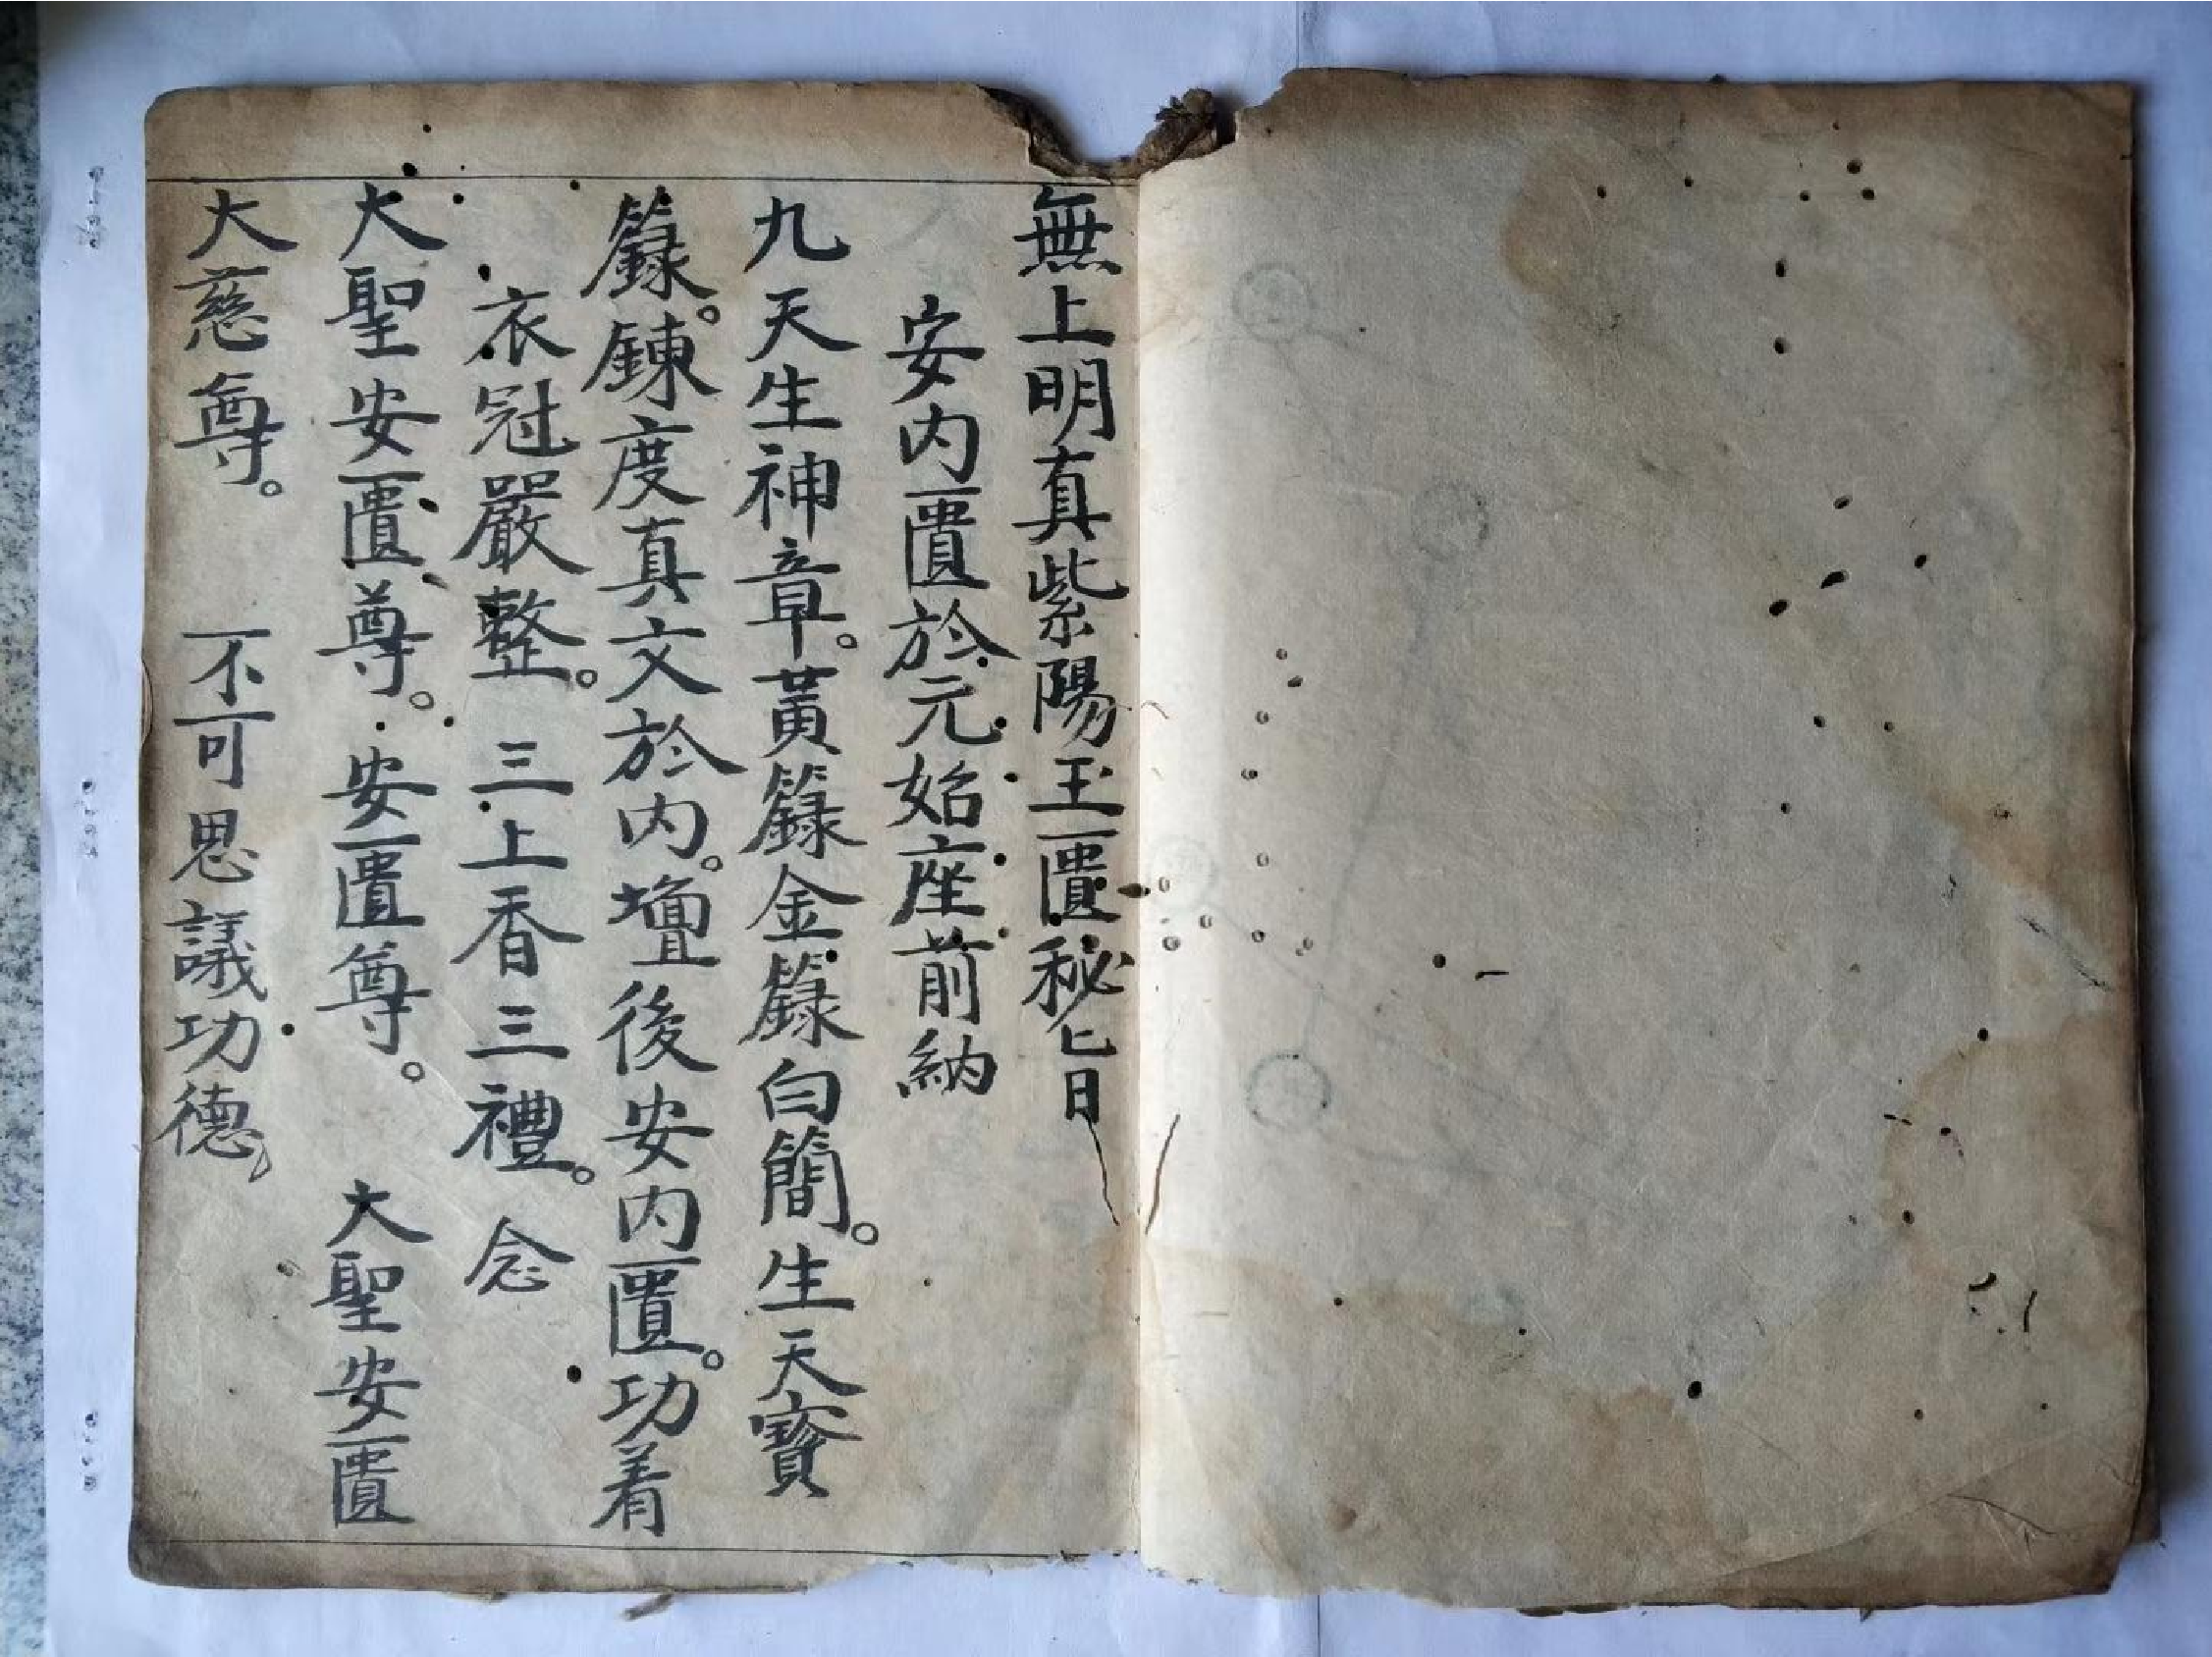 無上明真紫陽玉匱秘旨
安内匱於元始座前納
九天生神章。黃籙金籙白簡。生天寶
籙。鍊度真文於内。壇後安内匱。功着
衣冠嚴整。三上香三禮。念
大聖安匱尊。安匱尊。大聖安匱
大慈尊。不可思議功德。